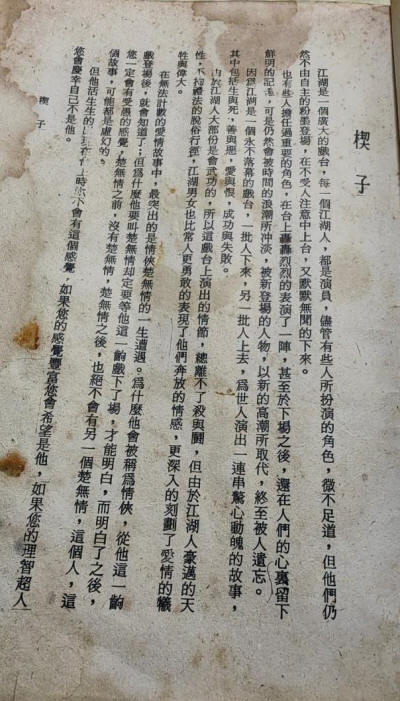 楔子
江湖是一個廣大的戲台，每一個江湖人，都是演員，儘管有些人所扮演的角色，微不足道，但他們仍
然不由自主的粉墨登場，在不受人注意中上台，又默默無聞的下來。
也有些人擔任過重要的角色，在台上轟轟烈烈的表演了一陣，甚至於下場之後，還在人們的心裏留下
鮮明的記憶，可是仍然會被時間的浪潮所冲淡，被新登場的人物，以新的高潮所取代，終至被人遺忘。
因爲江湖是一個永不落幕的戲台，一批人下來，另一批人上去，爲世人演出一連串驚心動魄的故事，
其中包括生與死，善與惡，愛與恨，成功與失敗。
由於江湖人大部份是會武功的，所以這戲台上演出的情節，總離不了殺與鬪，但由於江湖人豪邁的天
性，不拘禮法的脫俗行徑，江湖男女也比常人更勇敢的表現了他們奔放的情感，更深入的刻劃了愛情的犧
牲與偉大。
在無法計數的愛情故事中，最突出的是情俠楚無情的一生遭遇。爲什麼他會被稱爲情俠，從他這一齣
戲登場後，就會知道了；但爲什麼他要叫楚無情却定要等他這一齣戲下了場，才能明白，而明白了之後，
您一定會有受愚的感覺，楚無情之前，沒有楚無情，楚無情之後，也絕不會有另一個楚無情，這個人，這
個故事，可能都是虛幻的。
但他活生生的出現在 時 不會有這個感覺，如果您的感覺豐富您會希望是他，如果您的理智超人
您會慶幸自己不是他。
楔子